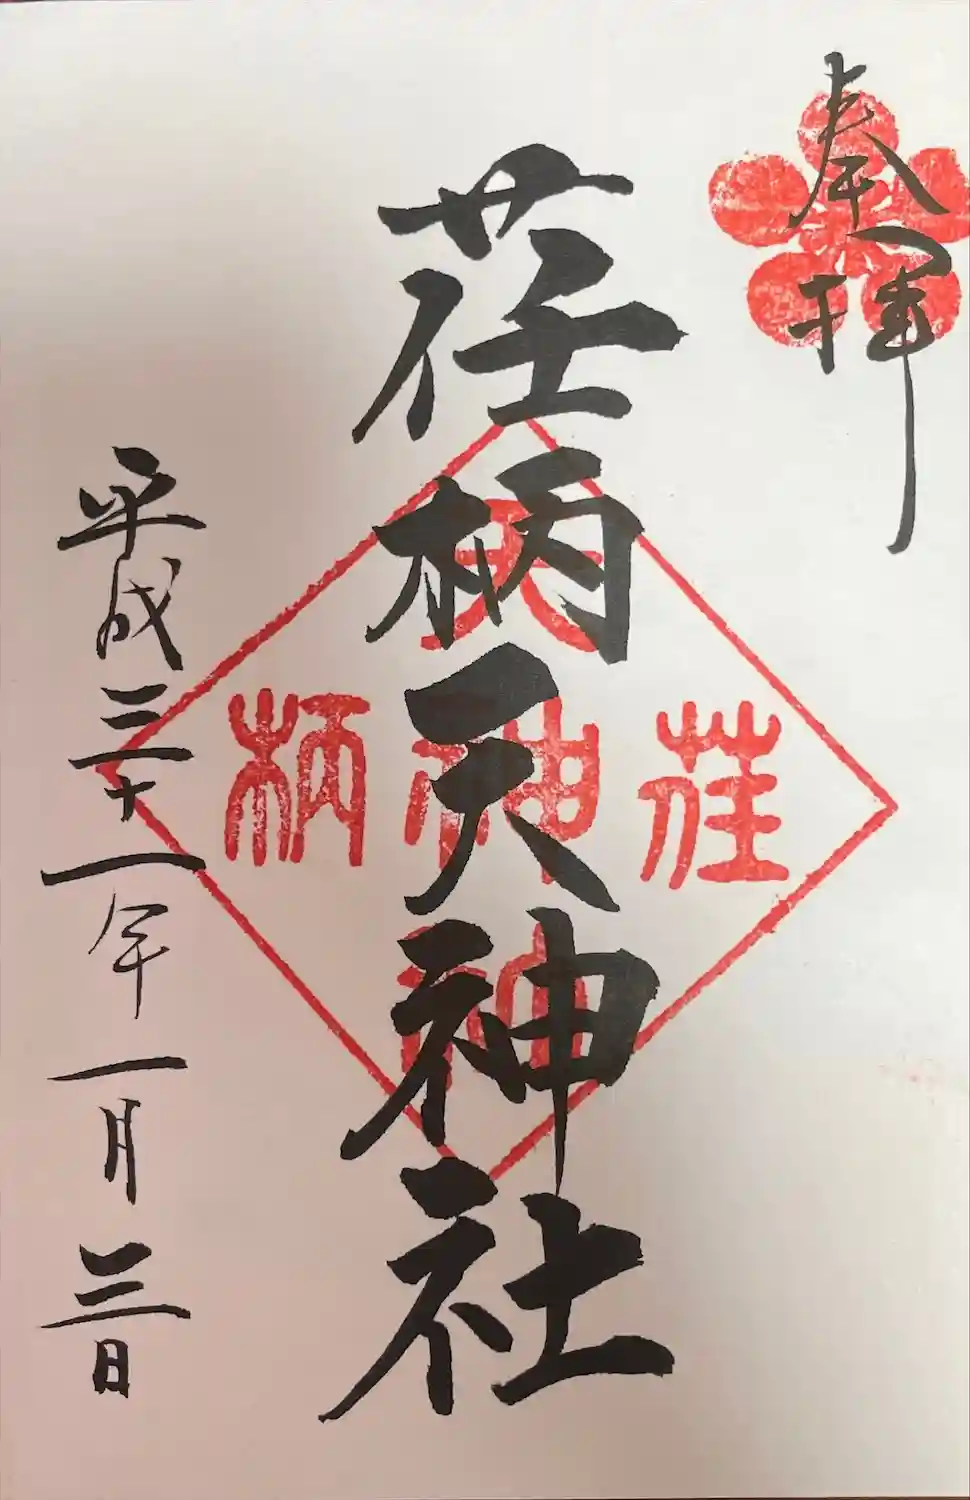 奉拝
荏柄天神社
天
荏神柄
神
平成三十一年一月三日